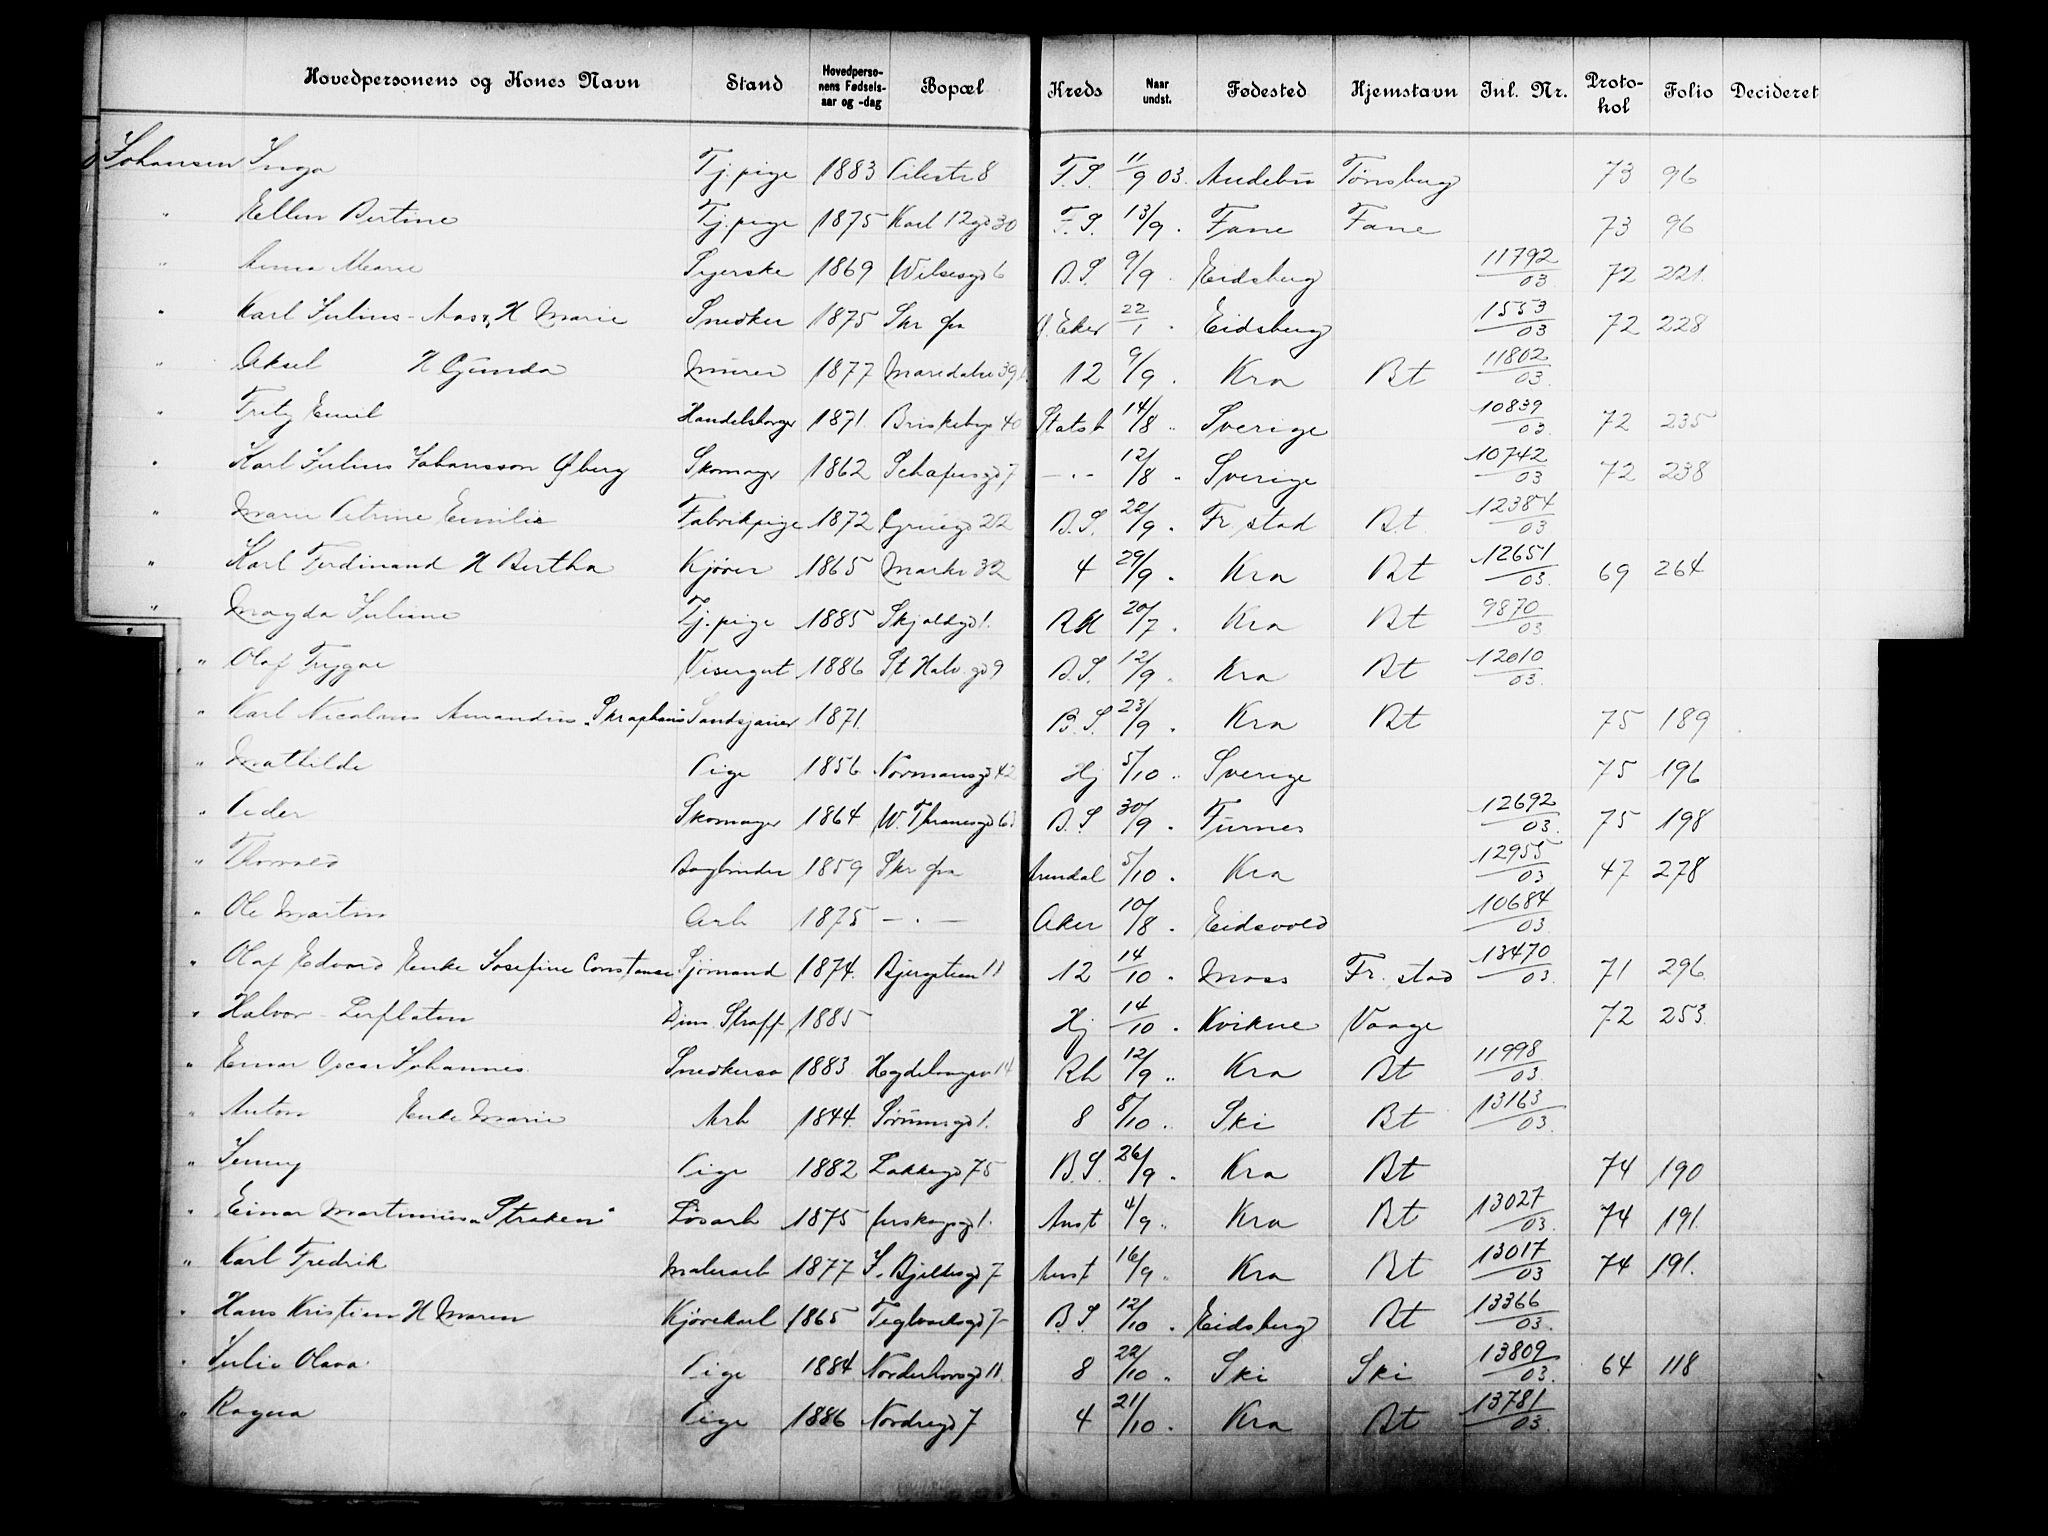 Hovedpersonens og Kones Navn Stand Hovedperso-nens Fødsels-aar og -dag Bopæl Kreds Naar undst. Fødested Hjemstavn Inl. Nr. Proto-kol Folio Decideret
Johansen Inga Tj. pige 1883 Pilestr 8 F.S. 11/9 03. Andebu Tønsberg 73 96
" Ellen Bertine Tj. pige 1875 Karl 12 gd 30 F.S. 13/9 . Fane Fane 73 96
" Anna Marie Syerske 1869 Wilsesgd 6 B.S. 9/9 . Eidsberg 11792/03 72 221.
" Karl Julius - Aas, H Marie Snedker 1875 Skr fra Ø. Eker 22/1 . Eidsberg 1553/03 72 228
" Aksel H Gunda Murer 1877 Maridalsv 39 12 9/9 . Kra Bt 11802/03.
" Fritz Emil Handelsborger 1871. Briskebyv 40 Statsb 14/8 " Sverige 10839/03. 72 235
" Karl Julius Johansson Øberg Skomager 1862 Schafersgd 7 - " - 12/8 " Sverige 10742/03 72 238
" Marie Petrine Emilie Fabrikpige 1872 Gruegd 22 B.S. 22/9 . Fr. stad Bt. 12384/03
" Karl Ferdinand H Bertha Kjører 1865 Markv 32 4 29/9 . Kra Bt 12651/03. 69 264
" Magda Juliane Tj. pige 1885 Skjoldgd 1. RH 20/7 . Kra Bt 9870/03
" Olaf Trygve Visergut 1886 St Halv. gd 9 B.S. 12/9 " Kra Bt 12010/03.
" Karl Nicolaus Amandus "Skraphans" Sandkjører 1871. B.S. 23/9 . Kra Bt 75 189
" Mathilde Pige 1856 Normansgd 42 Hj 5/10 " Sverige 75 196
" Peder Skomager 1864 W. Thranesgd 63 B.S 30/9 . Furnes 12692/03. 75 198
" Thorvald Bogbinder 1859 Skr fra Arendal 5/10 . Kra 12955/03 47 278
" Ole Martin Arb 1875 - . - Aker 10/8 . Eidsvold 10684/03.
" Olaf Edvard Enke Josefine Constance Sjømand 1874. Bjergstien 11 12 14/10 . Moss Fr. stad 13470/03. 71 296.
" Halvor - Lerflaten Dim. Straff. 1885 Hj 14/10 . Kvikne Vaage 72 253.
" Einar Oscar Johannes Snedkersv 1883 Hegdehaugsv 14 Rh 12/9 " Kra Bt 11998/03.
" Anton Enke Marie Arb 1844. Sørumsgd 1. 8 8/10 . Ski Bt 13163/03.
" Jenny Pige 1882 Lakkegd 75 B.S. 26/9 . Kra Bt 74 190
" Einar Martinius "Straken" Løsarb 1875 1. Anst 4/9 " Kra Bt 13027/03. 74 191.
" Karl Fredrik Malerarb 1877 J. Bjelkesgd 7 Anst 16/9 " Kra Bt 13017/03 74 191.
" Hans Kristian H Maren Kjørekarl 1865 Teglverksgd 7 B.S. 12/10 . Eidsberg Bt 13366/03.
" Julie Olava. Pige 1884 Norderhovsgd 11. 8 22/10 " Ski Ski 13809/03. 64 118
" Ragna Pige 1886 Nordregd 7 4 21/10 . Kra Bt 13781/03.